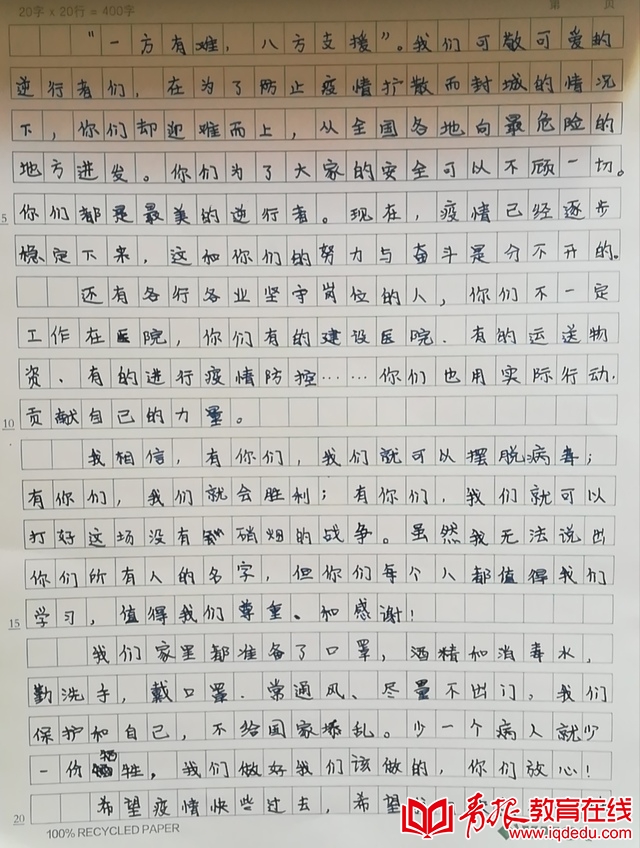 20字 x 20行 = 400字 第 页
“一方有难，八方支援”。我们可敬可爱的
逆行者们，在为了防止疫情扩散而封城的情况
下，你们却迎难而上，从全国各地向最危险的
地方进发。你们为了大家的安全可以不顾一切。
5 你们都是最美的逆行者。现在，疫情已经逐步
稳定下来，这和你们的努力与奋斗是分不开的。
还有各行各业坚守岗位的人，你们不一定
工作在医院，你们有的建设医院、有的运送物
资、有的进行疫情防控……你们也用实际行动
10 贡献自己的力量。
我相信，有你们，我们就可以摆脱病毒；
有你们，我们就会胜利；有你们，我们就可以
打好这场没有硝烟的战争。虽然我无法说出
你们所有人的名字，但你们每个人都值得我们
15 学习，值得我们尊重、和感谢！
我们家里都准备了口罩，酒精和消毒水，
勤洗手，戴口罩、常通风、尽量不出门，我们
保护和自己，不给国家添乱。少一个病人就少
一份牺牲，我们做好我们该做的，你们放心！
20 希望疫情快些过去，希望
100% RECYCLED PAPER
青报教育在线
www.iqdedu.com